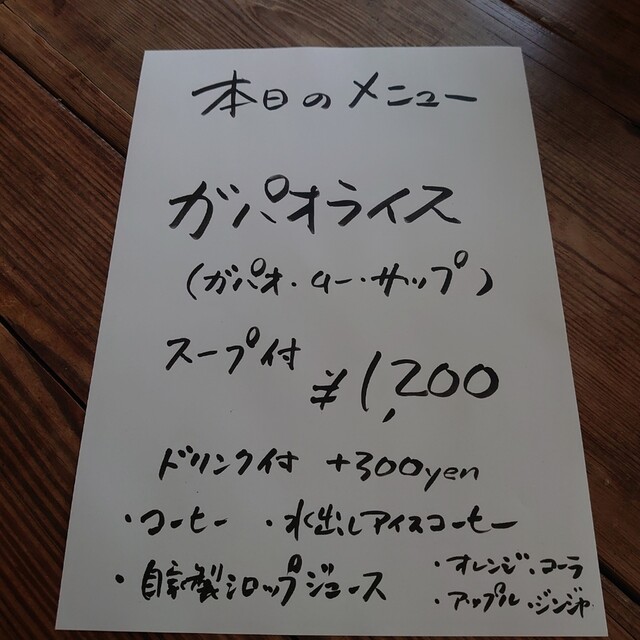 本日のメニュー
ガパオライス
(ガパオ・ムー・サップ)
スープ付
¥1,200
ドリンク付 +300yen
・コーヒー ・水出しアイスコーヒー
・自家製シロップジュース
・オレンジ・コーラ
・アップル・ジンジャ